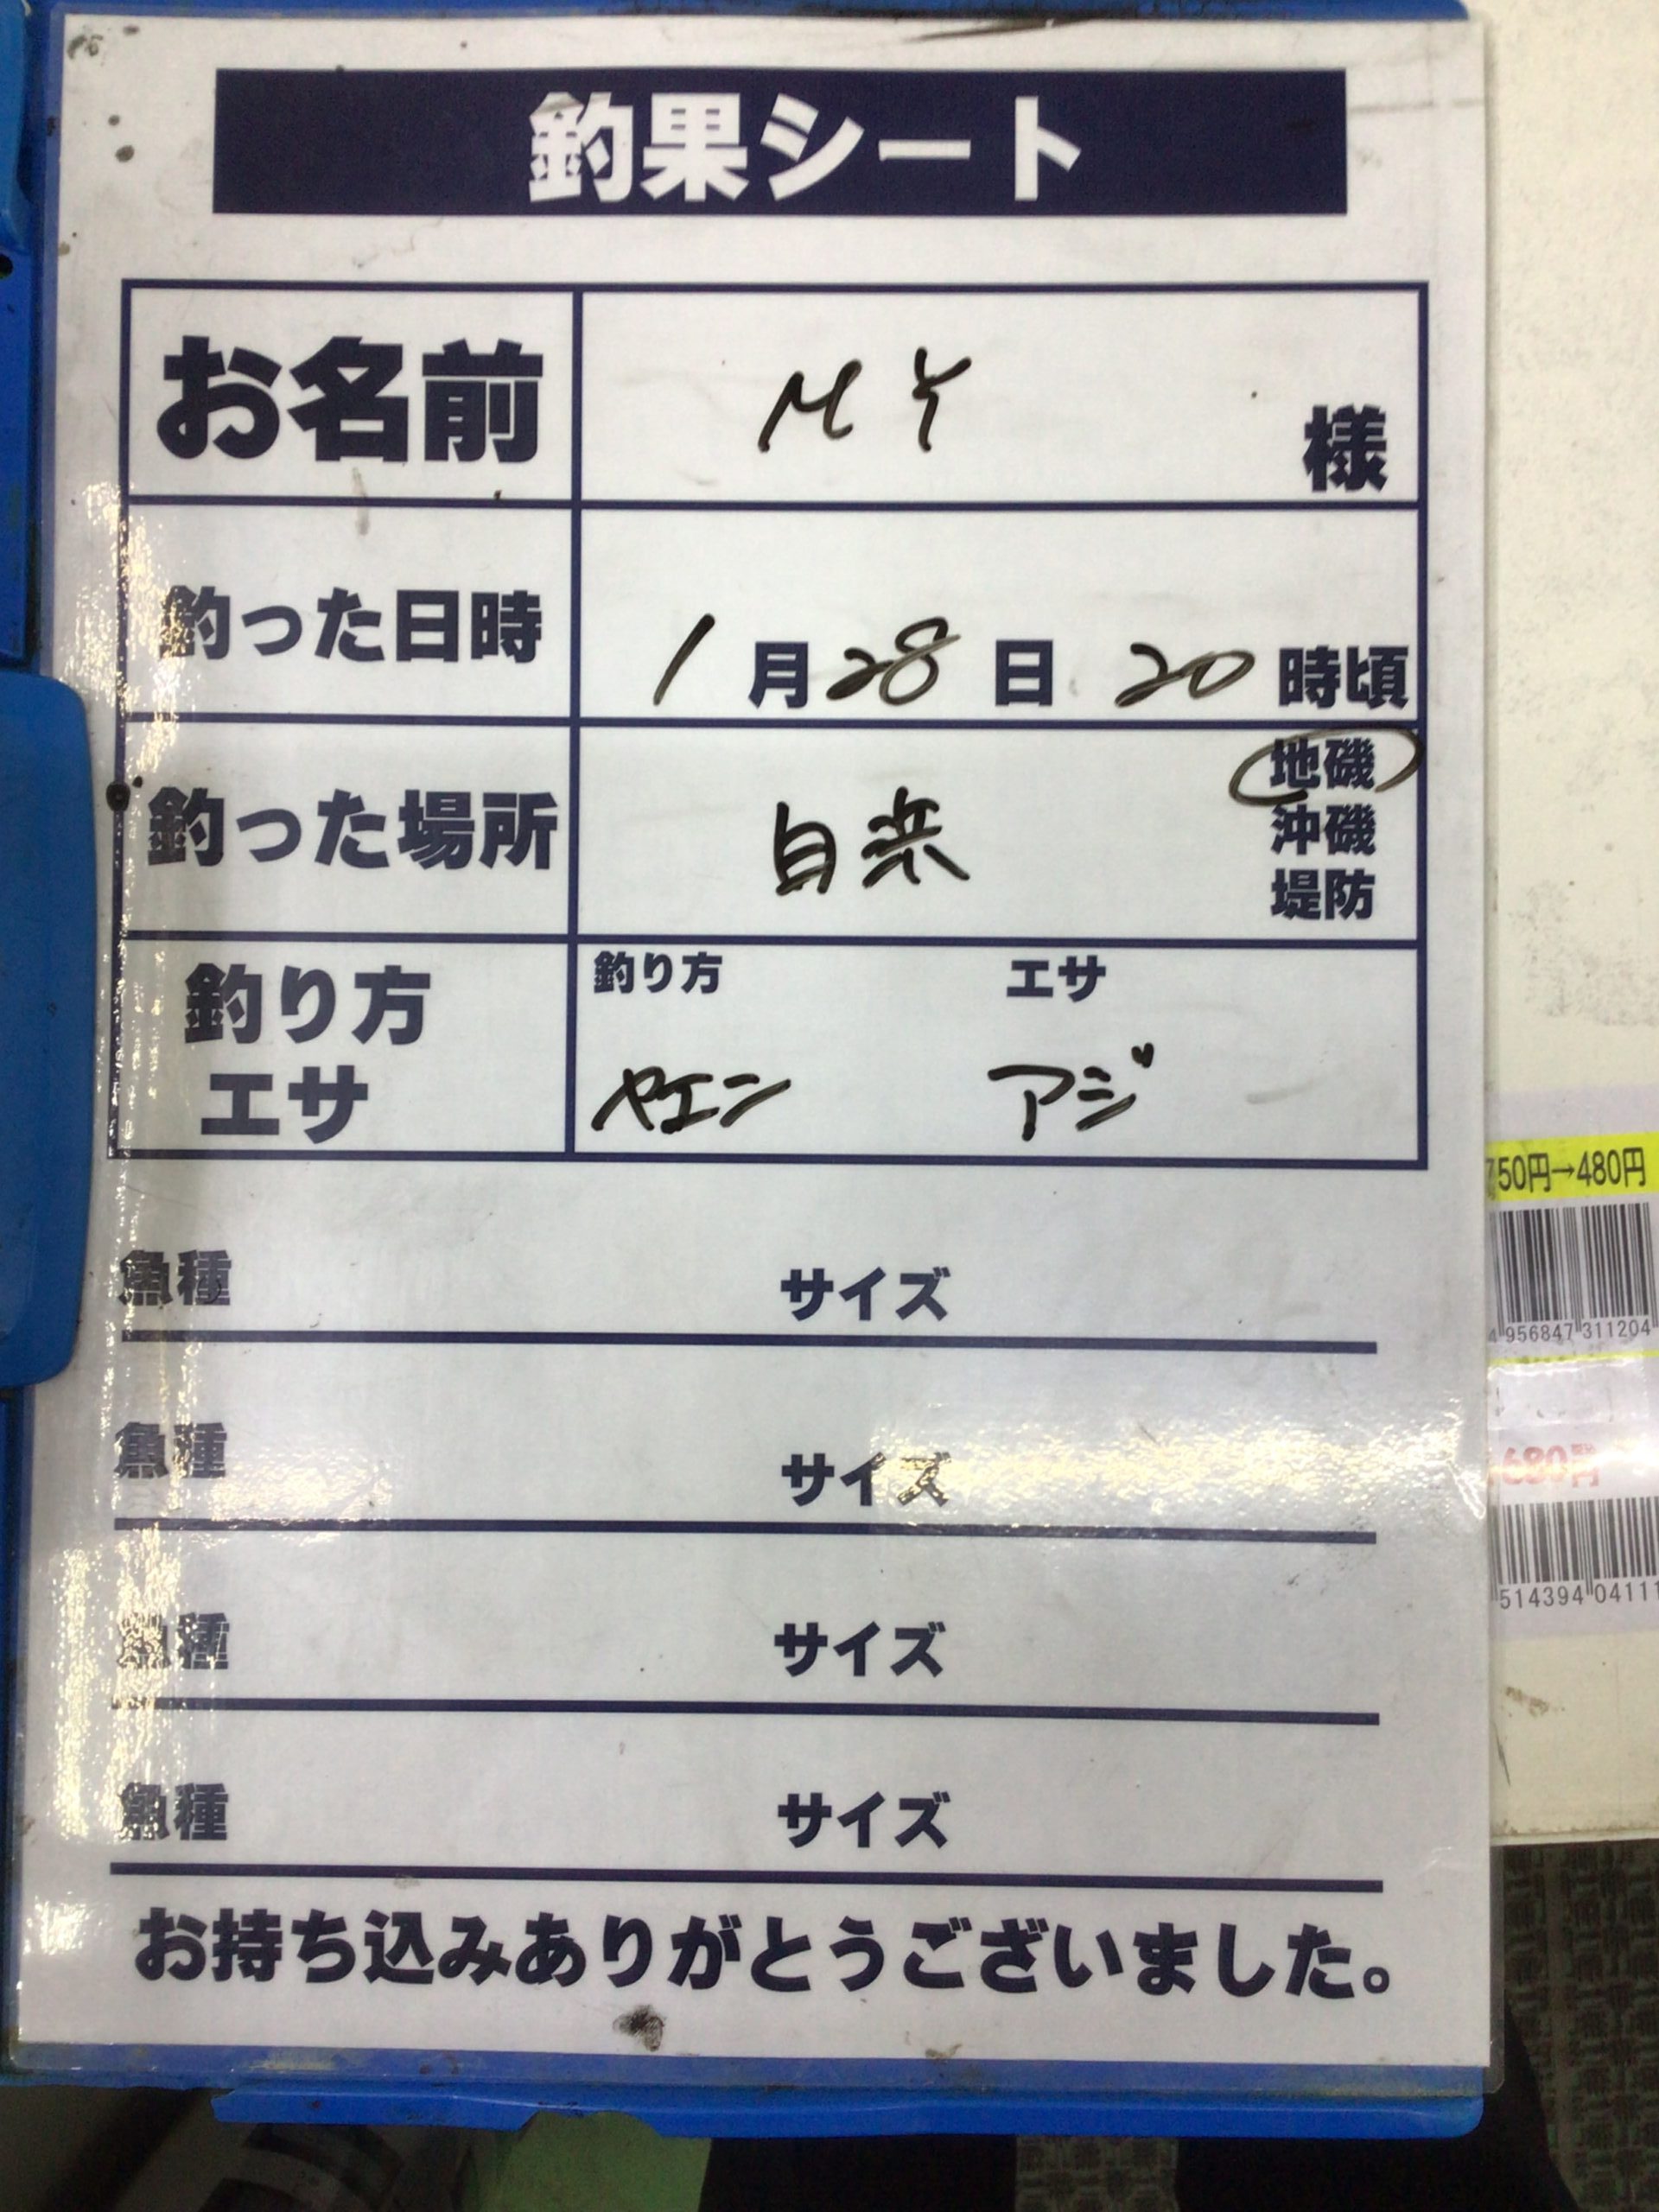 釣果シート
お名前 MY 様
釣った日時 1月28日 20時頃
釣った場所 白浜 地磯
沖磯
堤防
釣り方 エサ
釣り方 エサ
ヤエン アジ
魚種 サイズ
魚種 サイズ
魚種 サイズ
魚種 サイズ
お持ち込みありがとうございました。
750円→480円
4 956847 311204
680円
514394 04111